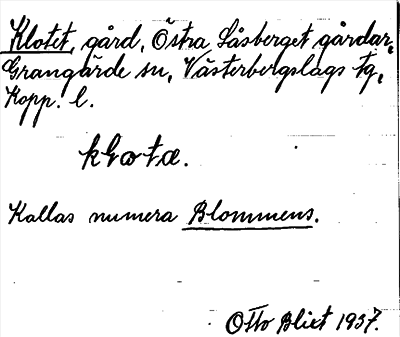 Klotet, gård, Östra Låsberget gårdar,
Grangärde sn, Västerbergslags tg,
Kopp. l.
Kallas numera Blommens.
Otto Blixt 1937.